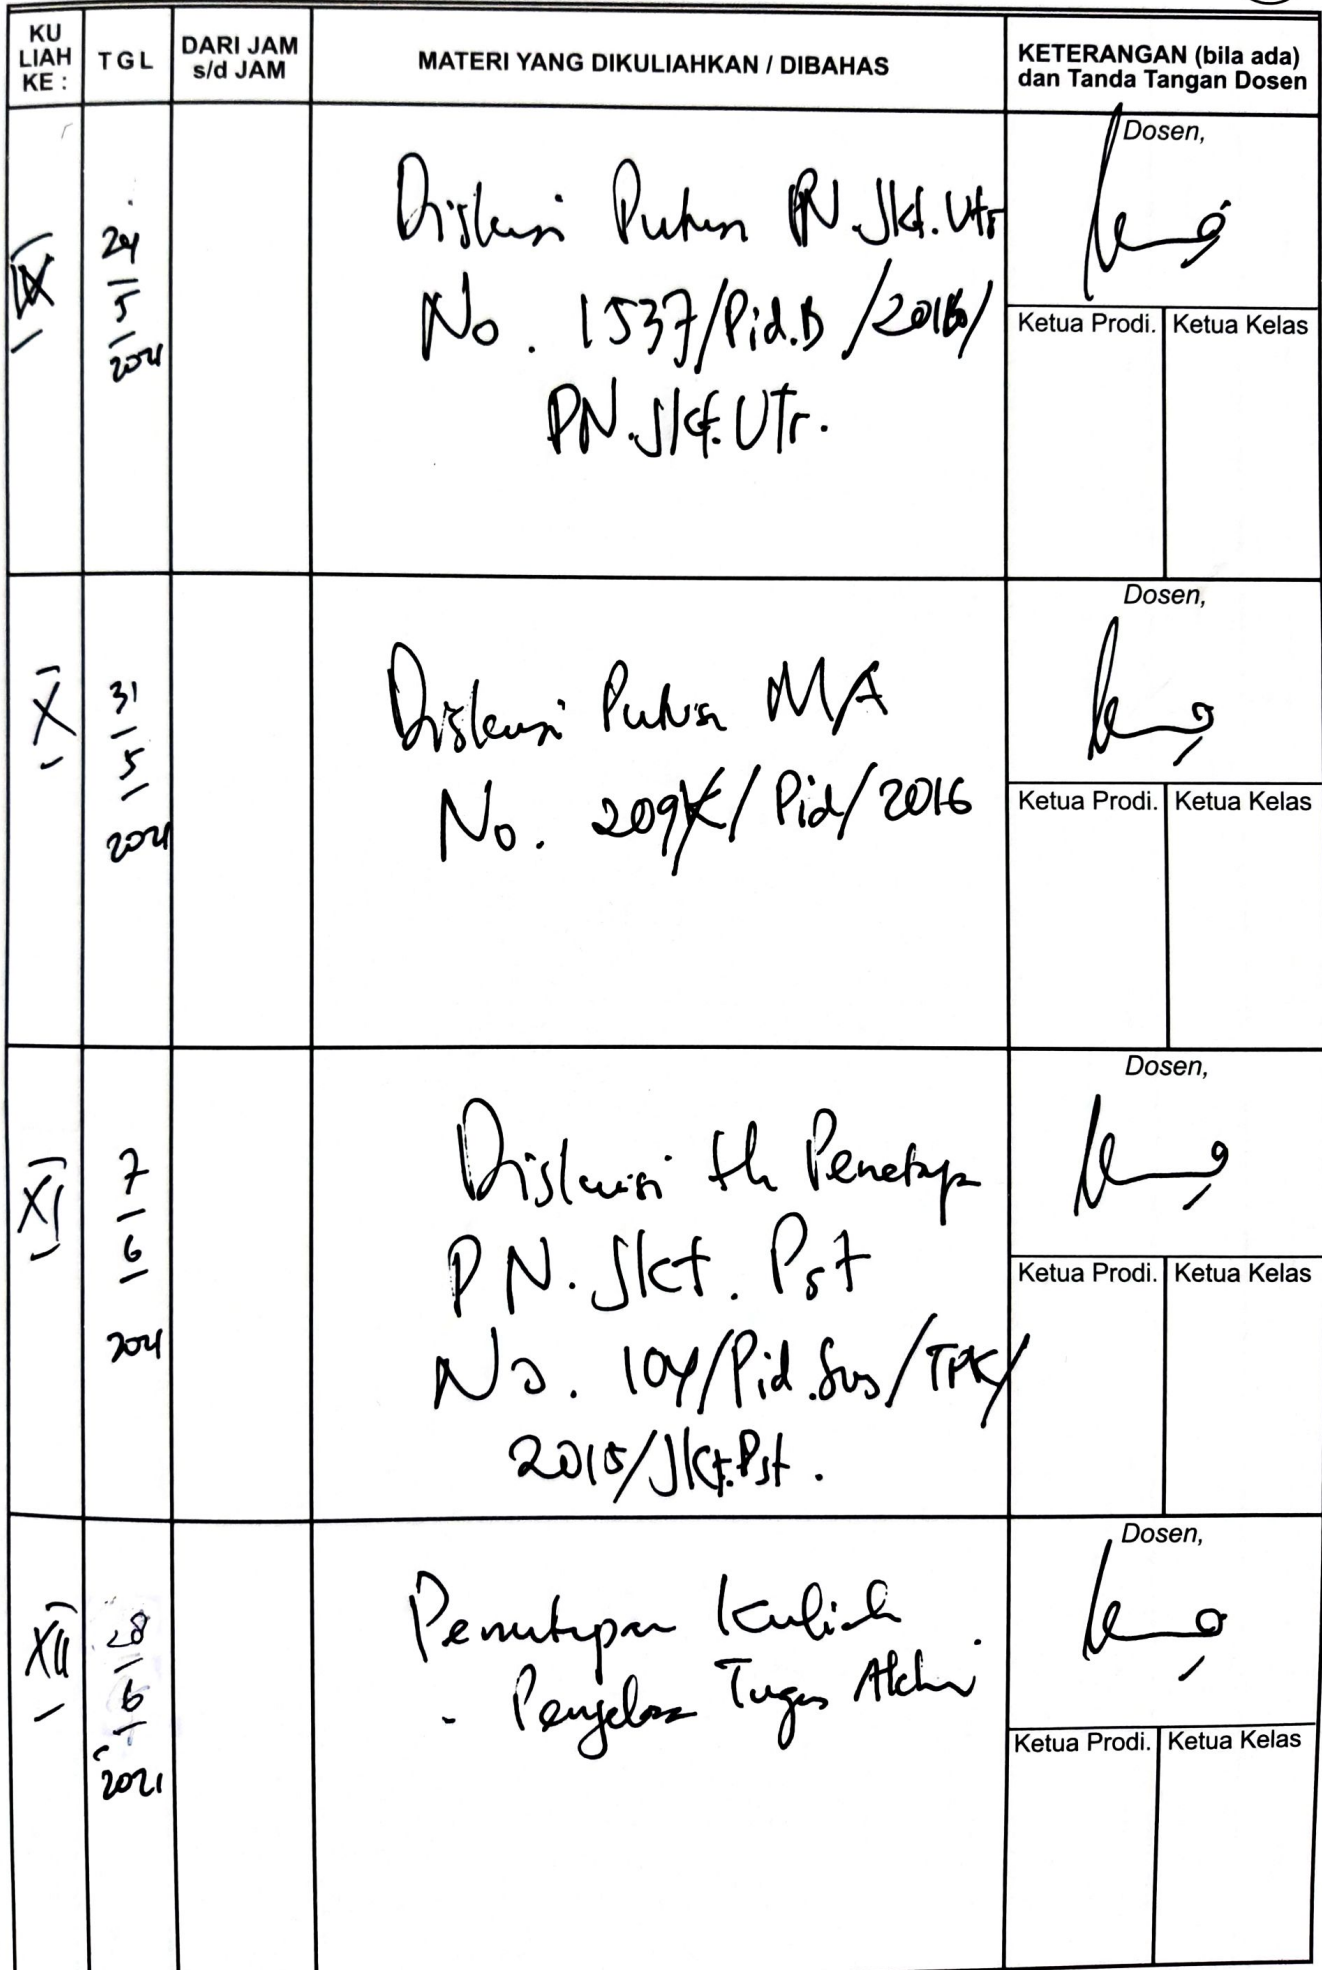 KU LIAH KE :
T G L
DARI JAM s/d JAM
MATERI YANG DIKULIAHKAN / DIBAHAS
KETERANGAN (bila ada) dan Tanda Tangan Dosen
IX
24/5/2021
Diskusi Putusan PN.Jkt.Utr
No. 1537/Pid.B/2016/
PN.Jkt.Utr.
Dosen,
Ketua Prodi. Ketua Kelas
X
31/5/2021
Diskusi Putusan MA
No. 209K/Pid/2016
Dosen,
Ketua Prodi. Ketua Kelas
XI
7/6/2021
Diskusi th Penetapan
PN. Jkt. Pst
No. 104/Pid.Sus/TPK/
2015/Jkt.Pst.
Dosen,
Ketua Prodi. Ketua Kelas
XII
28/6/2021
Penutupan Kuliah
- Penjelasan Tugas Akhir
Dosen,
Ketua Prodi. Ketua Kelas